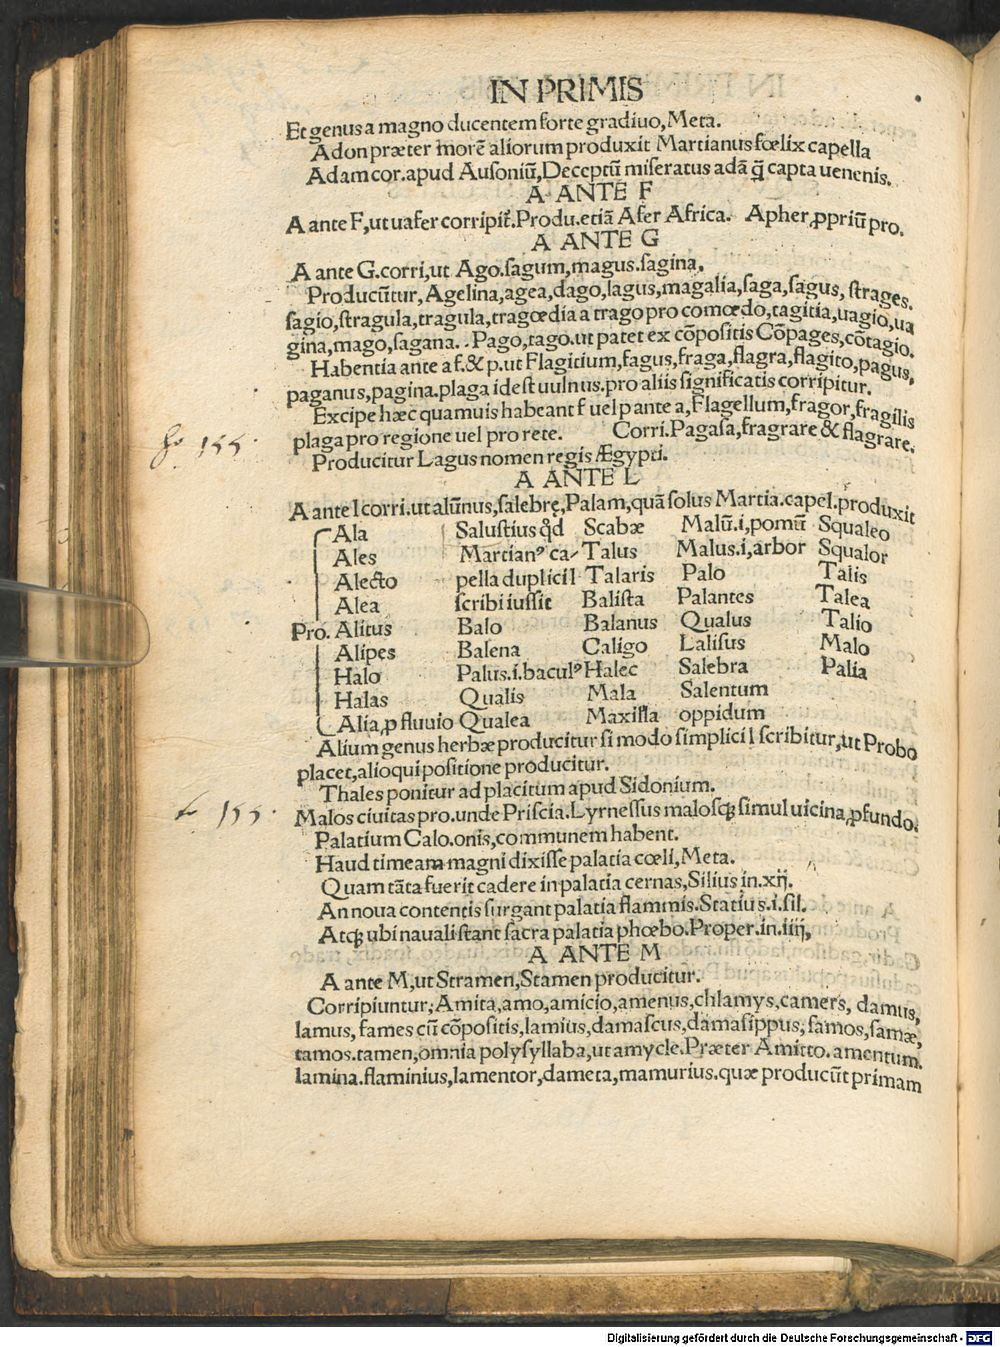 IN PRIMIS
Et genus a magno ducentem forte gradiuo, Meta.
Adon præter morē aliorum produxit Martianus fœlix capella
Adam cor. apud Ausoniū, Deceptū miseratus adā q̄ capta uenenis.
A ANTE F
A ante F, ut uafer corripit̄. Produ. etiā Afer Africa. Apher, ꝓpriū pro.
A ANTE G
A ante G. corri, ut Ago. sagum, magus. sagina.
Producūtur, Agelina, agea, dago, lagus, magalia, saga, sagus, strages.
sagio, stragula, tragula, tragœdia a trago pro comœdo, tagitia, uagio, ua
gina, mago, sagana. . Pago, tago. ut patet ex cōpositis Cōpages, cōtagio.
Habentia ante a f. & p. ut Flagitium, fagus, fraga, flagra, flagito, pagus,
paganus, pagina. plaga idest uulnus. pro aliis significatis corripitur.
Excipe hæc quamuis habeant f uel p ante a, Flagellum, fragor, fragilis
plaga pro regione uel pro rete. Corri. Pagasa, fragrare & flagrare.
155.
Producitur Lagus nomen regis Ægypti.
A ANTE L
A ante l corri. ut alūnus, salebrę, Palam, quā solus Martia. capel. produxit
Ala Salustius q̄d Scabæ Malū. i, pomū Squaleo
Ales Martianꝰ ca- Talus Malus. i, arbor Squalor
Alecto pella duplici l Talaris Palo Talis
Alea scribi iussit Balista Palantes Talea
Pro. Alitus Balo Balanus Qualus Talio
Alipes Balena Caligo Lalisus Malo
Halo Palus. i. baculꝰ Halec Salebra Palia
Halas Qualis Mala Salentum
Alia, ꝓ fluuio Qualea Maxilla oppidum
Alium genus herbæ producitur si modo simplici l scribitur, ut Probo
placet, alioqui positione producitur.
Thales ponitur ad placitum apud Sidonium.
155.
Malos ciuitas pro. unde Priscia. Lyrnessus malosqꝫ simul uicina, ꝓfundo.
Palatium Calo. onis, communem habent.
Haud timeam magni dixisse palatia cœli, Meta.
Quam tāta fuerit cadere in palatia cernas, Silius in. xij.
An noua contentis surgant palatia flammis. Statius. i. sil.
Atqꝫ ubi nauali stant sacra palatia phœbo. Proper. in. iiij,
A ANTE M
A ante M, ut Stramen, Stamen producitur.
Corripiuntur; Amita, amo, amicio, amenus, chlamys, camers, damus,
lamus, fames cū cōpositis, lamius, damascus, damasippus, samos, samæ,
tamos. tamen, omnia polysyllaba, ut amycle. Præter Amitto. amentum.
lamina. flaminius, lamentor, dameta, mamurius. quæ producūt primam
Digitalisierung gefördert durch die Deutsche Forschungsgemeinschaft - DFG